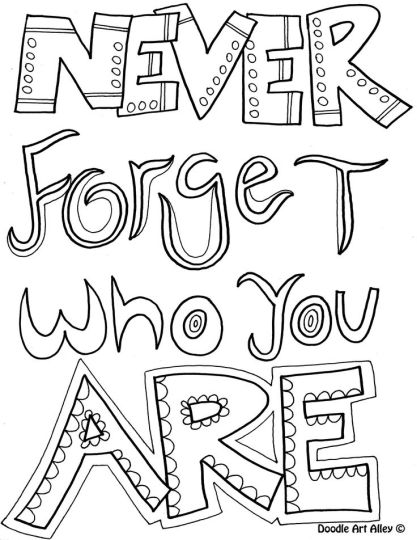 NEVER
forget
who you
ARE
Doodle Art Alley ©